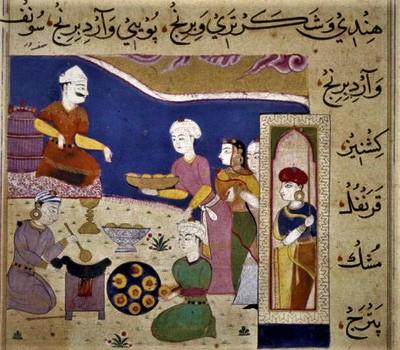 هندي و شكرتري و برنج، و آرد برنج، سونف
و آرد برنج،
كشنيز
قرنفل،
مشك،
پترج،